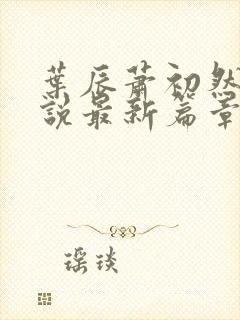 葉辰蕭初然
說最新篇章
瑶琰